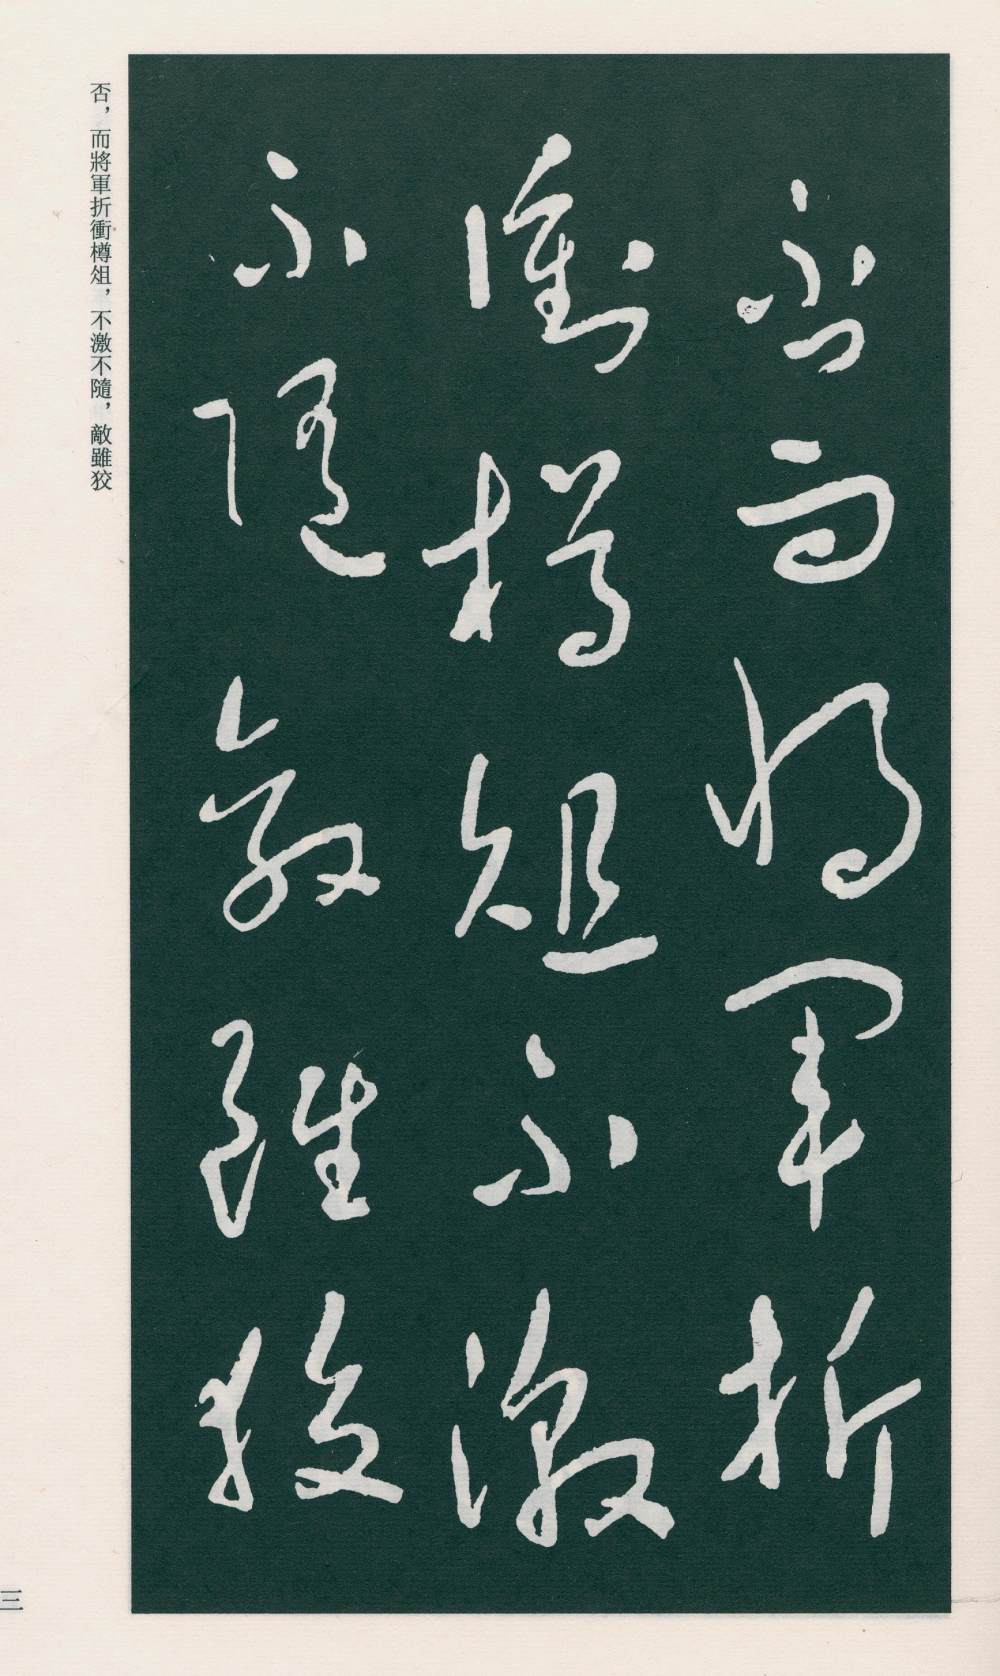 否而將軍折
衝樽俎不激
不隨敵雖狡
否，而將軍折衝樽俎，不激不隨，敵雖狡
三